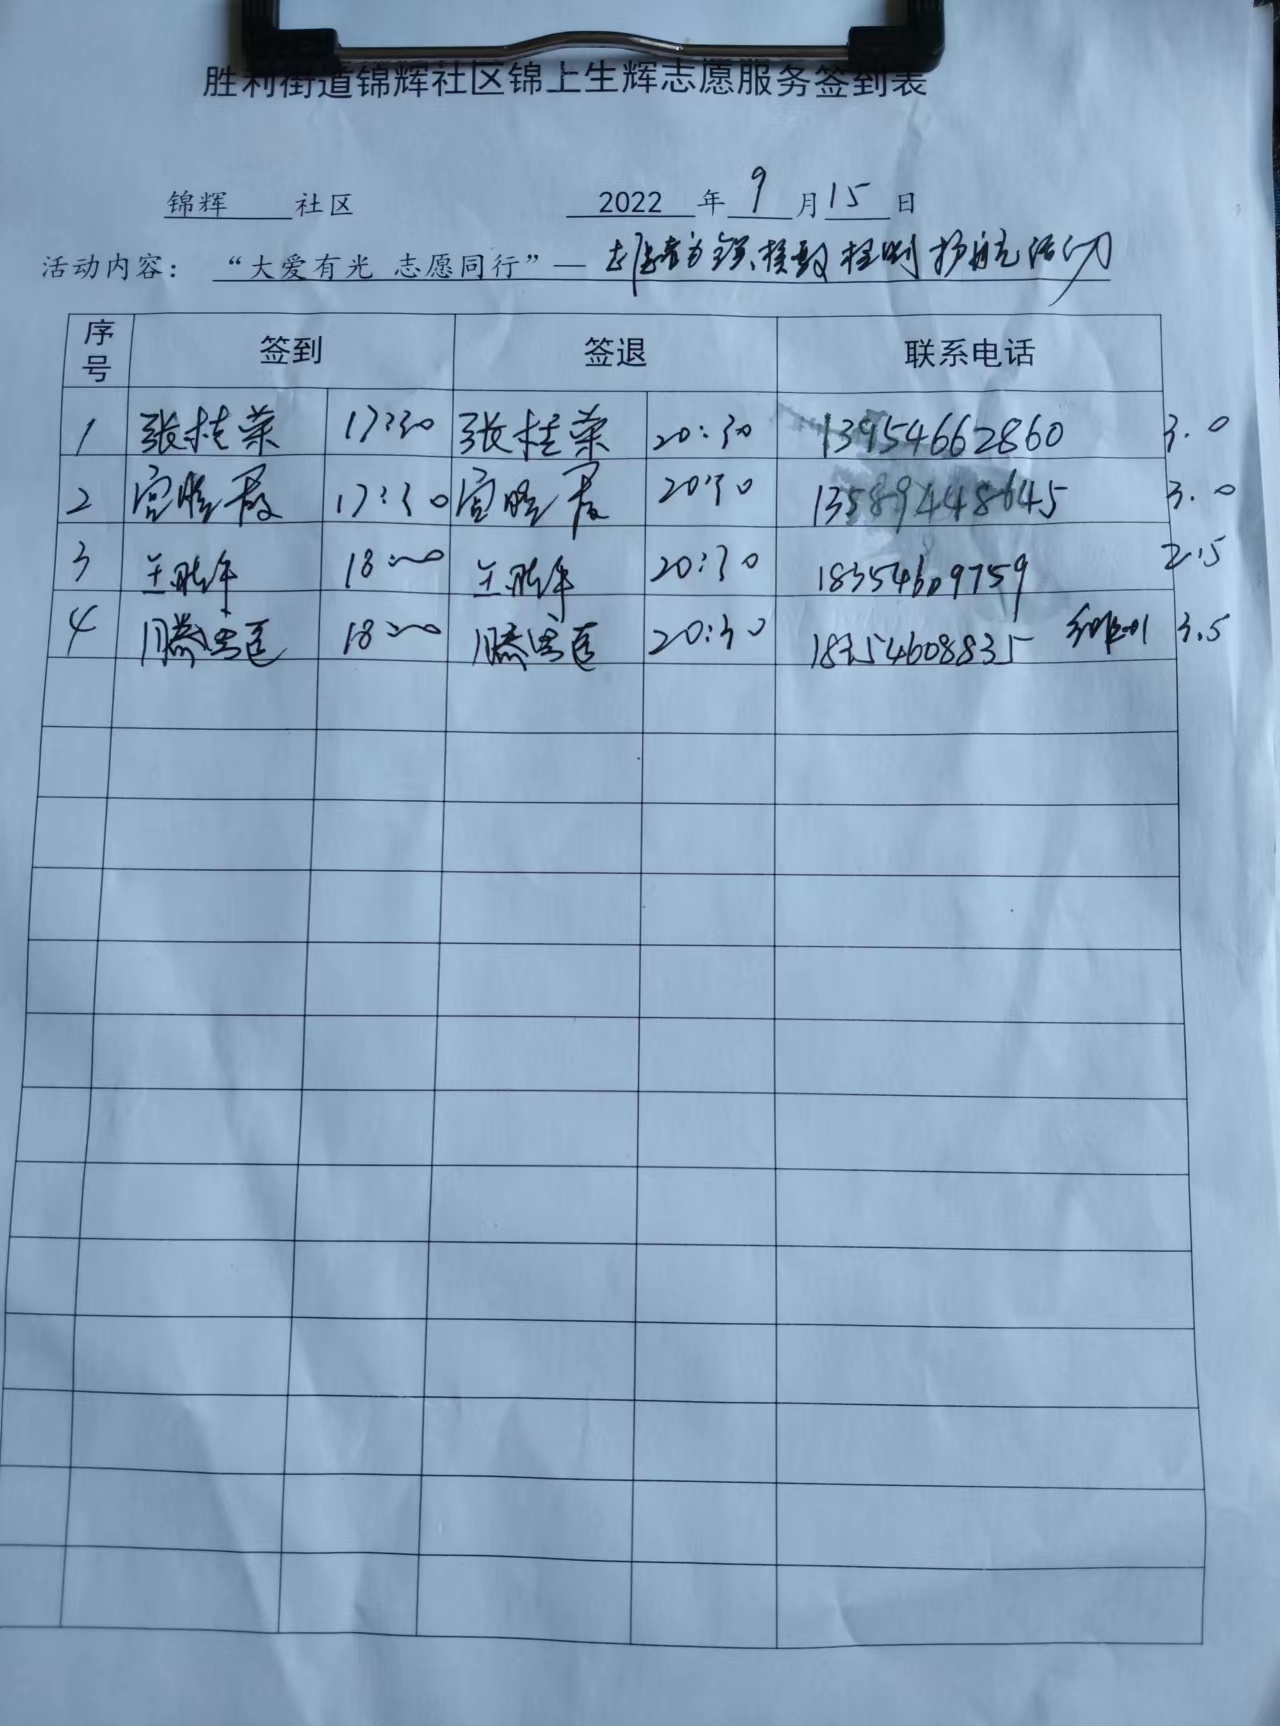 胜利街道锦辉社区锦上生辉志愿服务签到表
锦辉 社区 2022 年 9 月 15 日
活动内容： “大爱有光 志愿同行”— 志愿者为全员核酸检测护航活动
序号 签到 签退 联系电话
1 张桂荣 17:30 张桂荣 20:30 13954662860 3.0
2 宫 17:30 宫 20:30 13589448645 3.0
3 王 18:00 王 20:30 18354609759 2.5
4 滕 18:00 滕 20:30 18354608835 3.5